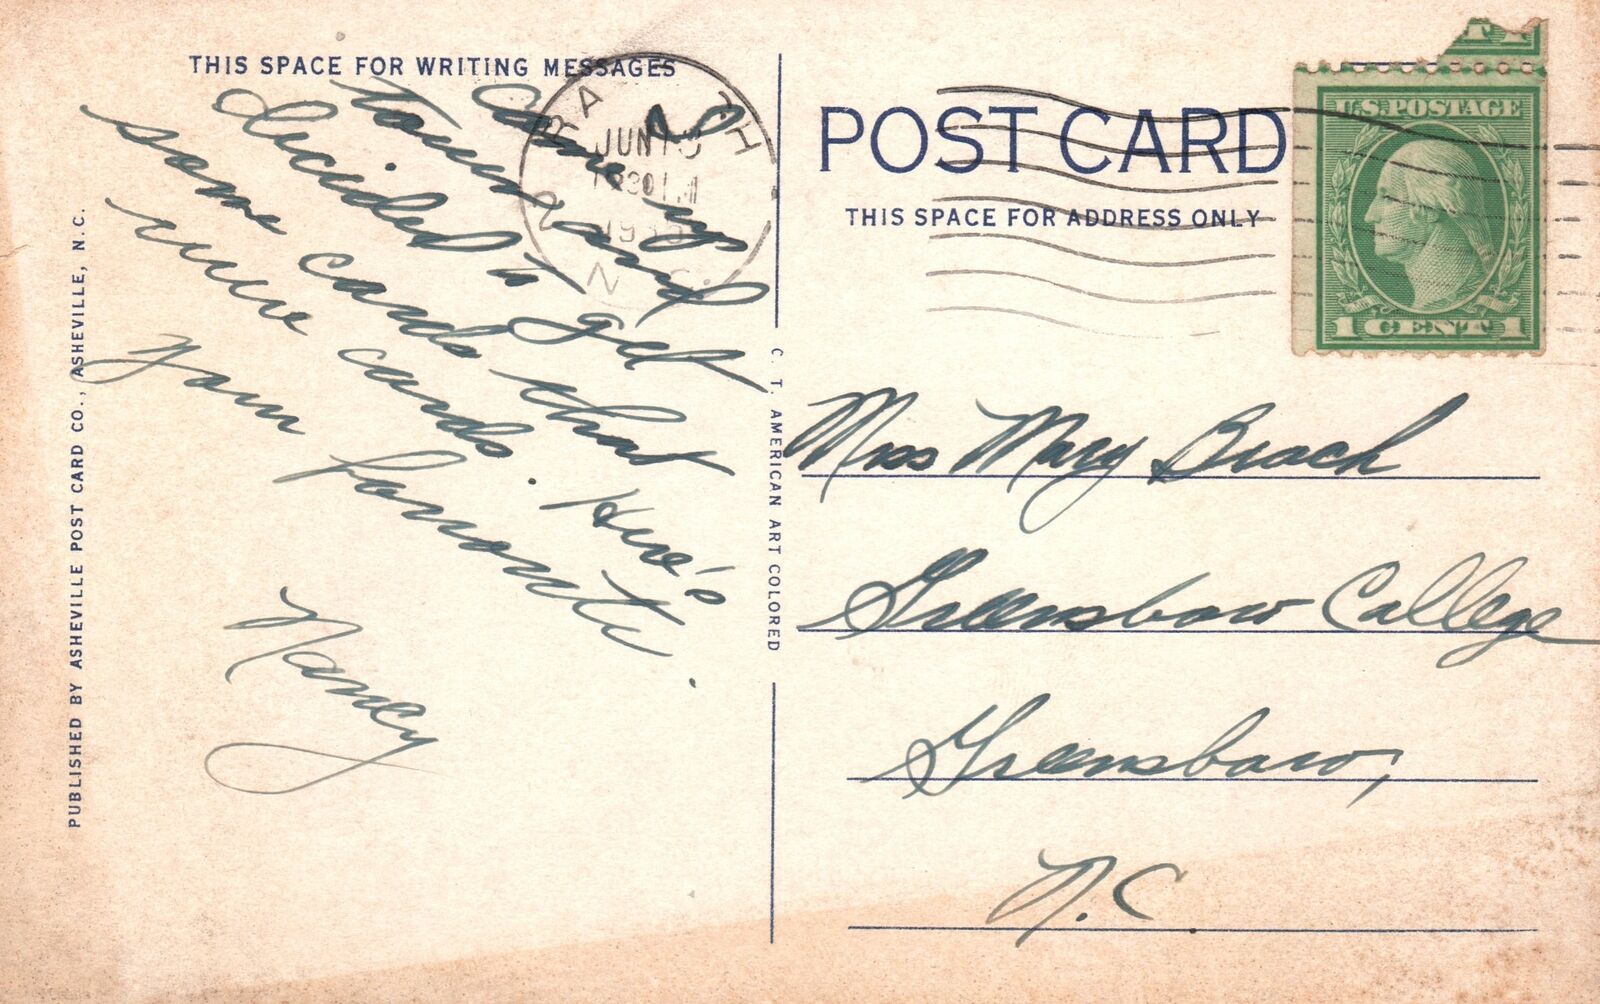 THIS SPACE FOR WRITING MESSAGES
Came up
town and
decided to get
some cards that
were cards. Here's
your favorite.
Nancy
PUBLISHED BY ASHEVILLE POST CARD CO., ASHEVILLE, N. C.
C. T. AMERICAN ART COLORED
N. C.
JUN
POST CARD
THIS SPACE FOR ADDRESS ONLY
U.S. POSTAGE
1 CENT 1
Miss Mary Brach
Greensboro College
Greensboro,
N.C